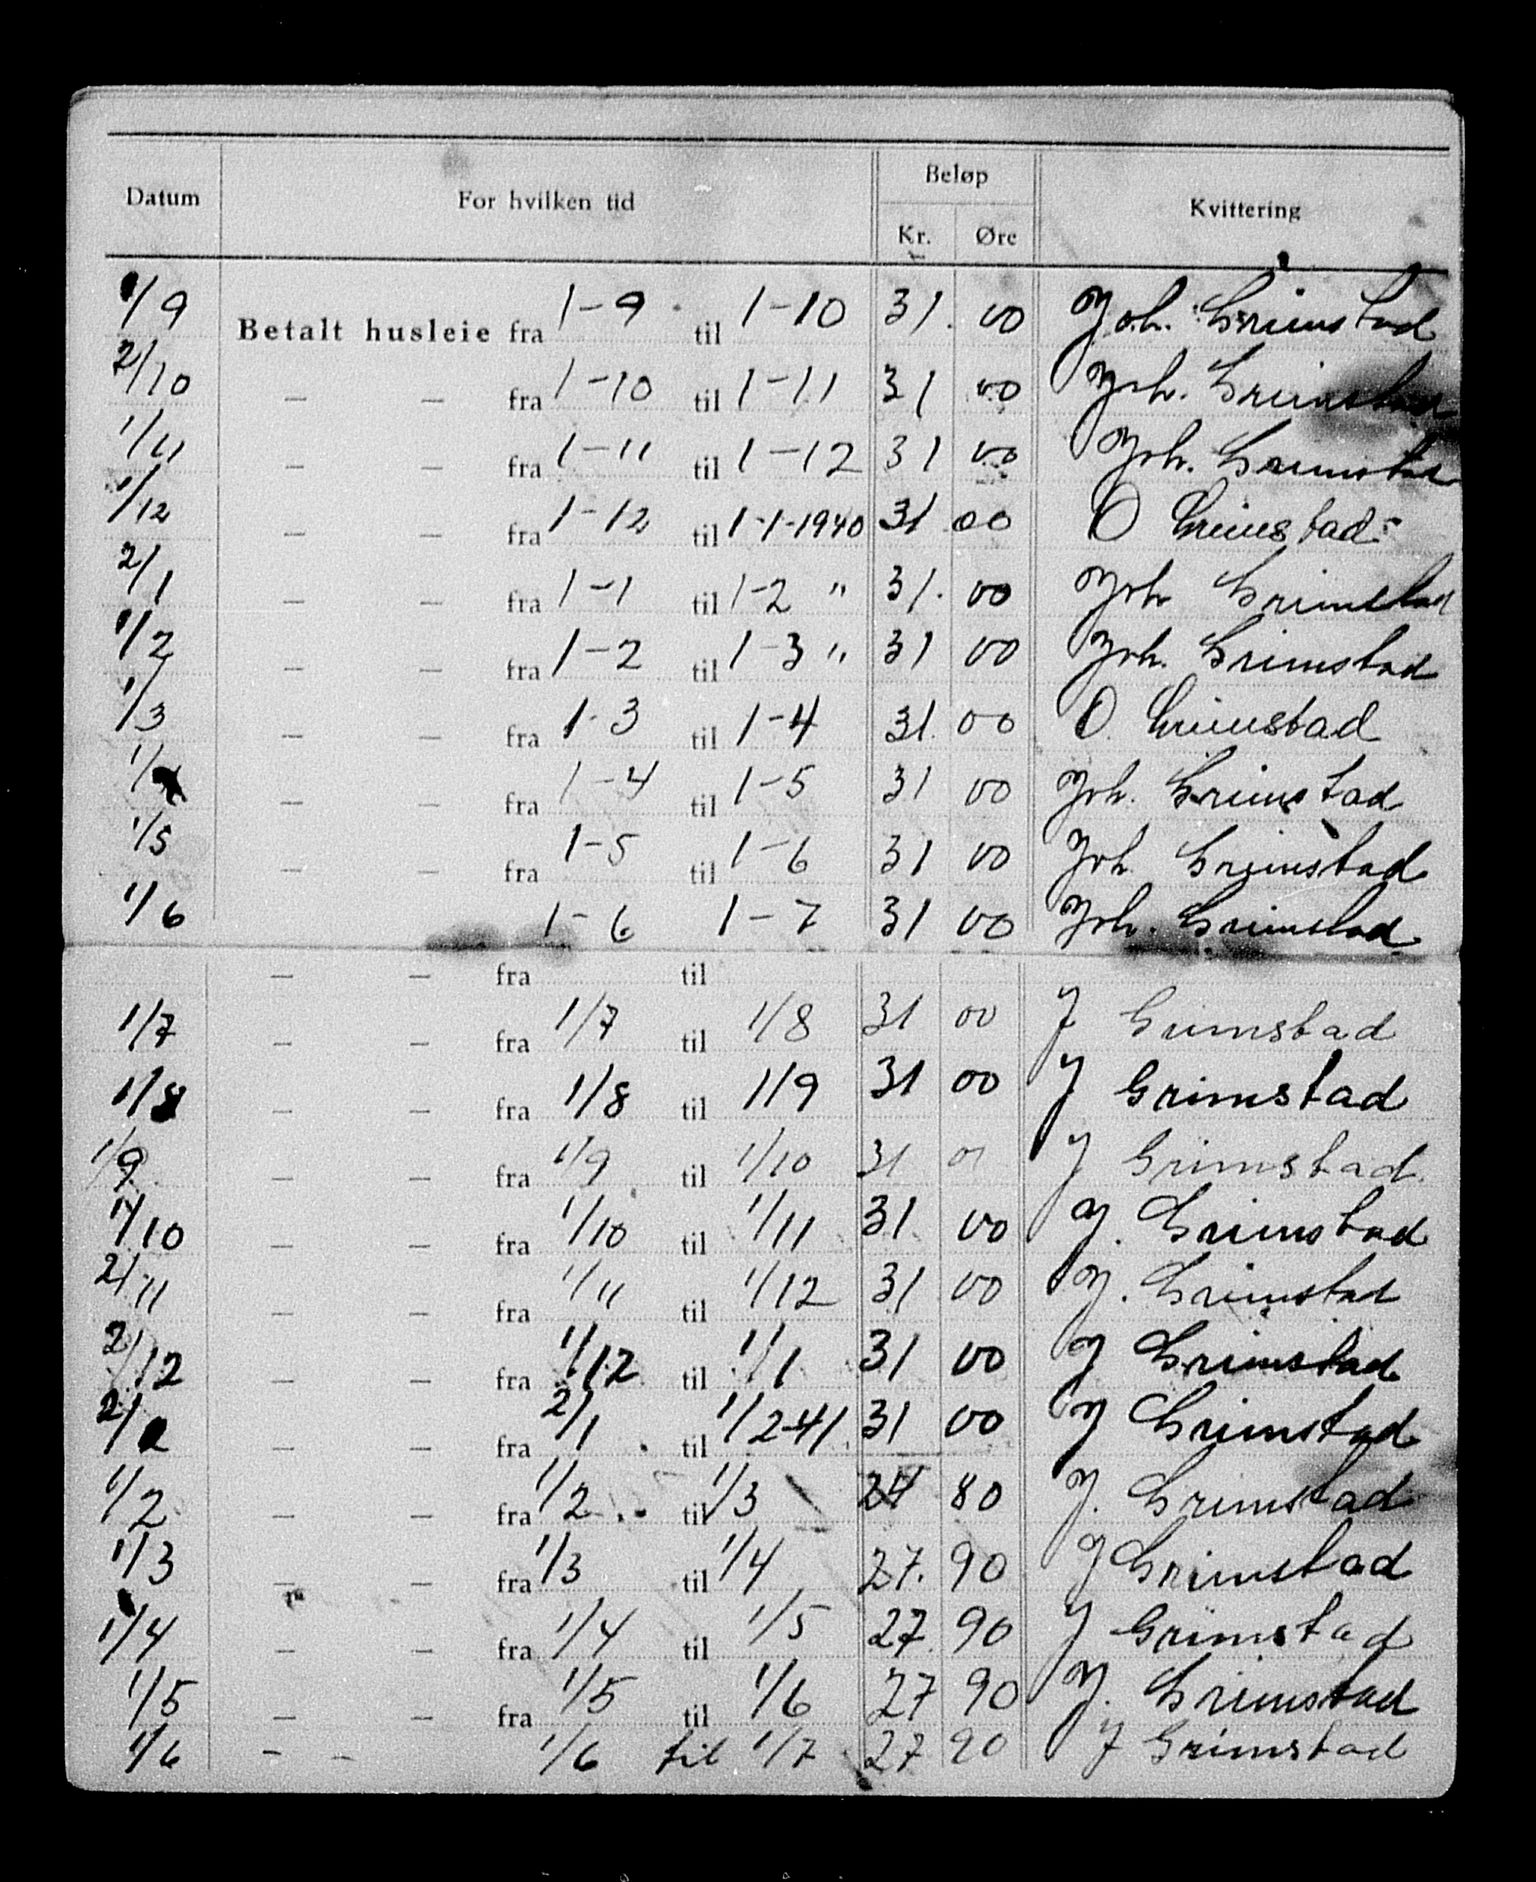 Datum For hvilken tid Beløp Kvittering
Kr. Øre
1/9 Betalt husleie fra 1-9 til 1-10 31. 00 Joh. Grimstad
2/10 — — fra 1-10 til 1-11 31 00 Joh. Grimstad
1/11 — — fra 1-11 til 1-12 31 00 Joh. Grimstad
1/12 — — fra 1-12 til 1-1-1940 31 00 O Grimstad
2/1 — — fra 1-1 til 1-2 " 31. 00 Joh Grimstad
1/2 — — fra 1-2 til 1-3 " 31 00 Joh. Grimstad
1/3 — — fra 1-3 til 1-4 31. 00 O. Grimstad
1/4 — — fra 1-4 til 1-5 31 00 Joh. Grimstad
1/5 — — fra 1-5 til 1-6 31 00 Joh Grimstad
1/6 1-6 1-7 31 00 Joh. Grimstad
— — fra til
1/7 — — fra 1/7 til 1/8 31 00 J Grimstad
1/8 — — fra 1/8 til 1/9 31 00 J Grimstad
1/9 — — fra 1/9 til 1/10 31 00 J Grimstad
1/10 — — fra 1/10 til 1/11 31. 00 J. Grimstad
2/11 — — fra 1/11 til 1/12 31 00 J. Grimstad
2/12 — — fra 1/12 til 1/1 31 00 J Grimstad
— — fra 2/1 til 1/2-41 31 00 J Grimstad
1/2 — — fra 1/2 til 1/3 24 80 J. Grimstad
1/3 — — fra 1/3 til 1/4 27. 90 J Grimstad
1/4 — — fra 1/4 til 1/5 27 90 J Grimstad
1/5 — — fra 1/5 til 1/6 27 90 J. Grimstad
1/6 — — 1/6 til 1/7 27 90 J Grimstad